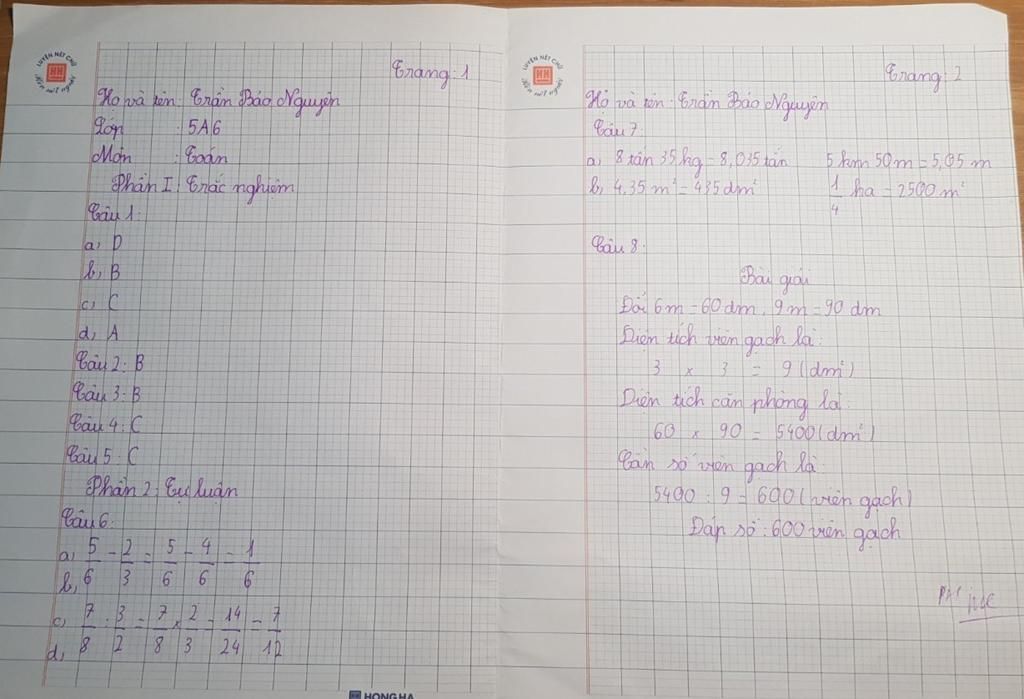 LUYỆN NÉT CHỮ
Rèn nết người
Trang: 1
Họ và tên: Trần Bảo Nguyên
Lớp : 5A6
Môn : Toán
Phần I: Trắc nghiệm
Câu 1:
a, D
b, B
c, C
d, A
Câu 2: B
Câu 3: B
Câu 4: C
Câu 5: C
Phần 2: Tự luận
Câu 6:
a, 5/6 - 2/3 = 5/6 - 4/6 = 1/6
b,
c, 7/8 : 3/2 = 7/8 x 2/3 = 14/24 = 7/12
d,
HONG HA
LUYỆN NÉT CHỮ
Rèn nết người
Trang: 2
Họ và tên: Trần Bảo Nguyên
Câu 7:
a, 8 tấn 35 kg = 8,035 tấn 5 km 50 m = 5,05 m
b, 4,35 m² = 435 dm² 1/4 ha = 2500 m²
Câu 8:
Bài giải
Đổi 6m = 60 dm, 9m = 90 dm
Diện tích viên gạch là:
3 x 3 = 9 (dm²)
Diện tích căn phòng là:
60 x 90 = 5400 (dm²)
Cần số viên gạch là:
5400 : 9 = 600 (viên gạch)
Đáp số: 600 viên gạch